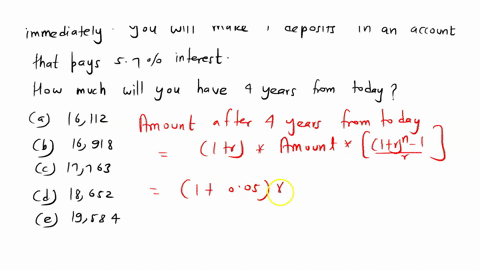 immediately. you will make deposits in an account
that pays 5.7% interest.
How much will you have 4 years from today?
(a) 16,112
(b) 16,918
(c) 17,763
(d) 18,652
(e) 19,584
Amount after 4 years from today
= (1+r) * Amount * [(1+r)^n - 1 / r]
= (1 + 0.05) x